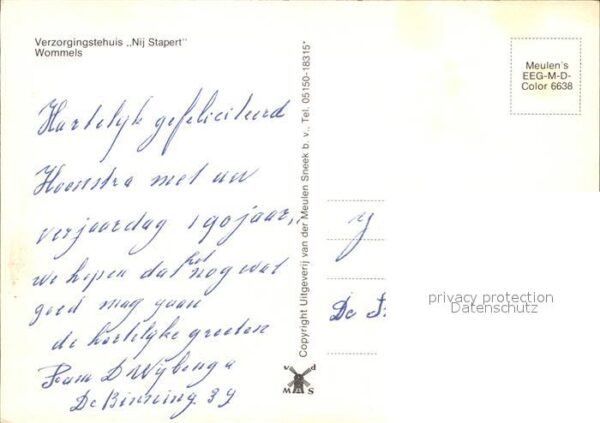 Verzorgingstehuis „Nij Stapert"
Wommels
Hartelyk gefeliciteerd
Hoenstra met uw
verjaardag 190 jaar,,
we hopen dat het nog wat
goed mag gaan
de hartelyke groeten
Fam D Wybenga
De Binning 39
Copyright Uitgeverij van der Meulen Sneek b. v., Tel. 05150-18315*
v d
M S
Meulen's
EEG-M-D-
Color 6638
De
privacy protection
Datenschutz